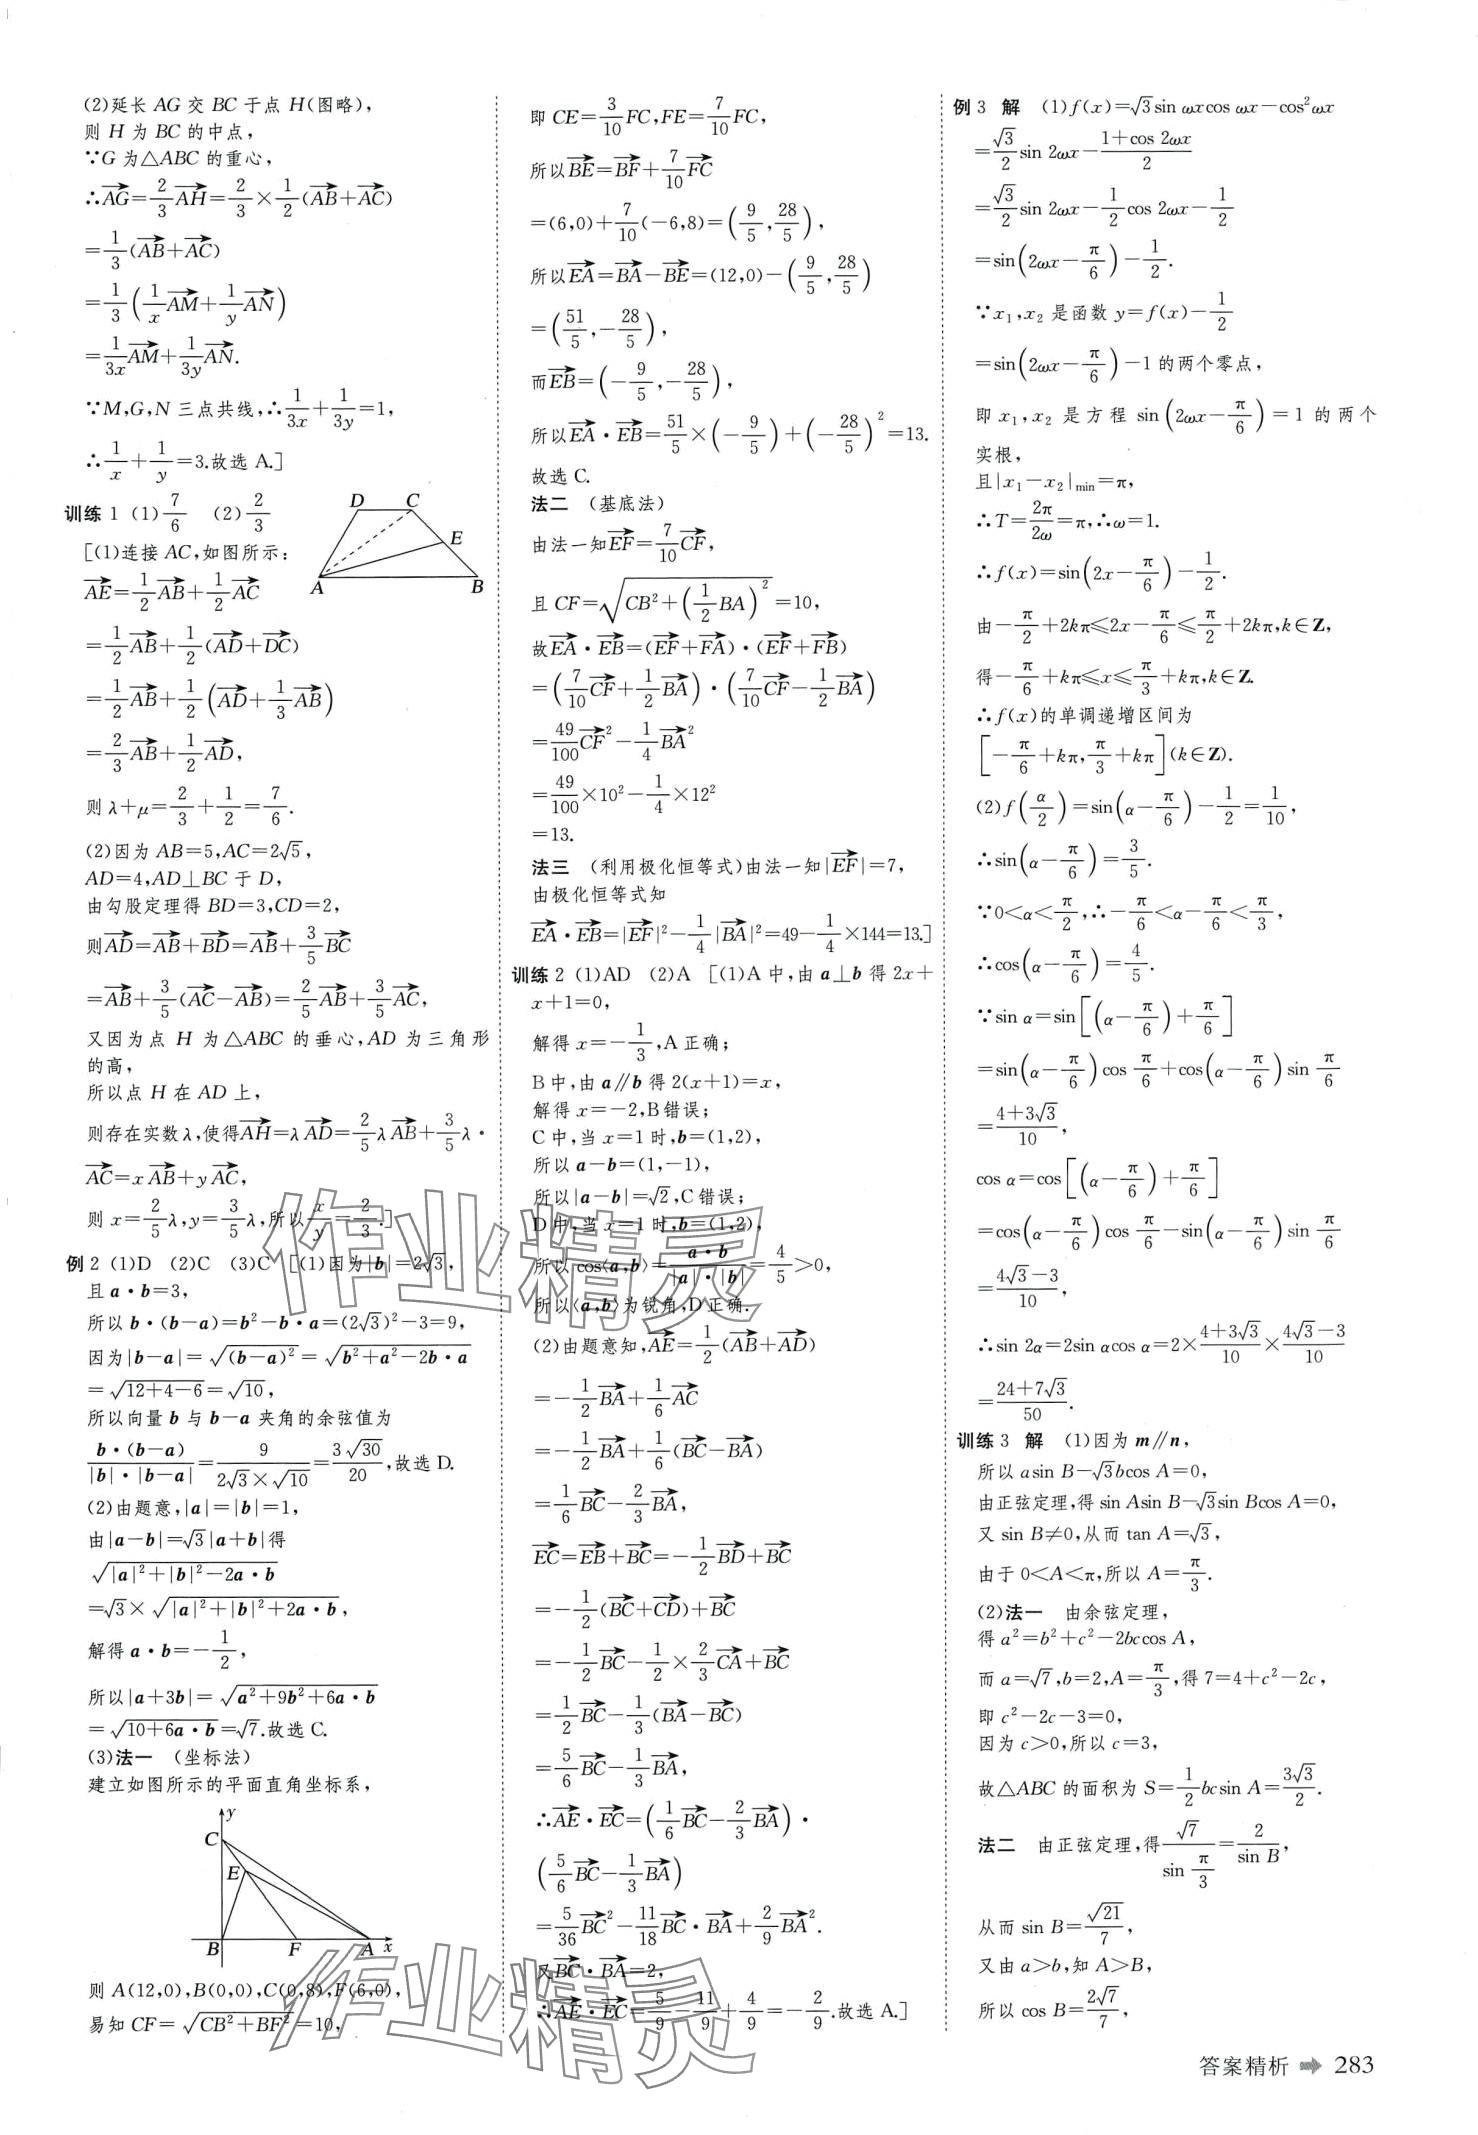 (2)延长 AG 交 BC 于点 H(图略),
则 H 为 BC 的中点,
∵G 为△ABC 的重心,
∴$\overrightarrow{AG}=\frac{2}{3}\overrightarrow{AH}=\frac{2}{3}×\frac{1}{2}(\overrightarrow{AB}+\overrightarrow{AC})$
$=\frac{1}{3}(\overrightarrow{AB}+\overrightarrow{AC})$
$=\frac{1}{3}\left(\frac{1}{x}\overrightarrow{AM}+\frac{1}{y}\overrightarrow{AN}\right)$
$=\frac{1}{3x}\overrightarrow{AM}+\frac{1}{3y}\overrightarrow{AN}.$
∵M,G,N 三点共线,∴$\frac{1}{3x}+\frac{1}{3y}=1$,
∴$\frac{1}{x}+\frac{1}{y}=3$.故选 A.]
训练 1 (1)$\frac{7}{6}$ (2)$\frac{2}{3}$
[(1)连接 AC,如图所示:
D C E A B
$\overrightarrow{AE}=\frac{1}{2}\overrightarrow{AB}+\frac{1}{2}\overrightarrow{AC}$
$=\frac{1}{2}\overrightarrow{AB}+\frac{1}{2}(\overrightarrow{AD}+\overrightarrow{DC})$
$=\frac{1}{2}\overrightarrow{AB}+\frac{1}{2}\left(\overrightarrow{AD}+\frac{1}{3}\overrightarrow{AB}\right)$
$=\frac{2}{3}\overrightarrow{AB}+\frac{1}{2}\overrightarrow{AD}$,
则 λ+μ=$\frac{2}{3}+\frac{1}{2}=\frac{7}{6}$.
(2)因为 AB=5,AC=2√5,
AD=4,AD⊥BC 于 D,
由勾股定理得 BD=3,CD=2,
则$\overrightarrow{AD}=\overrightarrow{AB}+\overrightarrow{BD}=\overrightarrow{AB}+\frac{3}{5}\overrightarrow{BC}$
$=\overrightarrow{AB}+\frac{3}{5}(\overrightarrow{AC}-\overrightarrow{AB})=\frac{2}{5}\overrightarrow{AB}+\frac{3}{5}\overrightarrow{AC}$,
又因为点 H 为△ABC 的垂心,AD 为三角形
的高,
所以点 H 在 AD 上,
则存在实数λ,使得$\overrightarrow{AH}=λ\overrightarrow{AD}=\frac{2}{5}λ\overrightarrow{AB}+\frac{3}{5}λ·$
$\overrightarrow{AC}=x\overrightarrow{AB}+y\overrightarrow{AC}$,
则 $x=\frac{2}{5}λ,y=\frac{3}{5}λ$,所以$\frac{x}{y}=\frac{2}{3}$.]
例 2 (1)D (2)C (3)C [(1)因为|b|=2√3,
且 a·b=3,
所以 b·(b-a)=b²-b·a=(2√3)²-3=9,
因为|b-a|=$\sqrt{(b-a)^2}=\sqrt{b^2+a^2-2b·a}$
$=\sqrt{12+4-6}=\sqrt{10}$,
所以向量 b 与 b-a 夹角的余弦值为
$\frac{b·(b-a)}{|b|·|b-a|}=\frac{9}{2\sqrt{3}×\sqrt{10}}=\frac{3\sqrt{30}}{20}$,故选 D.
(2)由题意,|a|=|b|=1,
由|a-b|=√3|a+b|得
$\sqrt{|a|^2+|b|^2-2a·b}$
$=\sqrt{3}×\sqrt{|a|^2+|b|^2+2a·b}$,
解得 a·b=$-\frac{1}{2}$,
所以|a+3b|=$\sqrt{a^2+9b^2+6a·b}$
$=\sqrt{10+6a·b}=\sqrt{7}$.故选 C.
(3)法一 (坐标法)
建立如图所示的平面直角坐标系,
y C E B F A x
则 A(12,0),B(0,0),C(0,8),F(6,0),
易知 CF=$\sqrt{CB^2+BF^2}$=10,
即 CE=$\frac{3}{10}$FC,FE=$\frac{7}{10}$FC,
所以$\overrightarrow{BE}=\overrightarrow{BF}+\frac{7}{10}\overrightarrow{FC}$
$=(6,0)+\frac{7}{10}(-6,8)=\left(\frac{9}{5},\frac{28}{5}\right)$,
所以$\overrightarrow{EA}=\overrightarrow{BA}-\overrightarrow{BE}=(12,0)-\left(\frac{9}{5},\frac{28}{5}\right)$
$=\left(\frac{51}{5},-\frac{28}{5}\right)$,
而$\overrightarrow{EB}=\left(-\frac{9}{5},-\frac{28}{5}\right)$,
所以$\overrightarrow{EA}·\overrightarrow{EB}=\frac{51}{5}×\left(-\frac{9}{5}\right)+\left(-\frac{28}{5}\right)^2=13.$
故选 C.
法二 (基底法)
由法一知$\overrightarrow{EF}=\frac{7}{10}\overrightarrow{CF}$,
且 CF=$\sqrt{CB^2+\left(\frac{1}{2}BA\right)^2}$=10,
故$\overrightarrow{EA}·\overrightarrow{EB}=(\overrightarrow{EF}+\overrightarrow{FA})·(\overrightarrow{EF}+\overrightarrow{FB})$
$=\left(\frac{7}{10}\overrightarrow{CF}+\frac{1}{2}\overrightarrow{BA}\right)·\left(\frac{7}{10}\overrightarrow{CF}-\frac{1}{2}\overrightarrow{BA}\right)$
$=\frac{49}{100}\overrightarrow{CF}^2-\frac{1}{4}\overrightarrow{BA}^2$
$=\frac{49}{100}×10^2-\frac{1}{4}×12^2$
=13.
法三 (利用极化恒等式)由法一知$|\overrightarrow{EF}|=7$,
由极化恒等式知
$\overrightarrow{EA}·\overrightarrow{EB}=|\overrightarrow{EF}|^2-\frac{1}{4}|\overrightarrow{BA}|^2=49-\frac{1}{4}×144=13.$]
训练 2 (1)AD (2)A [(1)A 中,由 a⊥b 得 2x+
x+1=0,
解得 x=$-\frac{1}{3}$,A 正确;
B 中,由 a∥b 得 2(x+1)=x,
解得 x=-2,B 错误;
C 中,当 x=1 时,b=(1,2),
所以 a-b=(1,-1),
所以|a-b|=√2,C 错误;
D 中,当 x=1 时,b=(1,2),
所以 cos⟨a,b⟩=$\frac{a·b}{|a|·|b|}=\frac{4}{5}>0$,
所以⟨a,b⟩为锐角,D 正确.
(2)由题意知,$\overrightarrow{AE}=\frac{1}{2}(\overrightarrow{AB}+\overrightarrow{AD})$
$=-\frac{1}{2}\overrightarrow{BA}+\frac{1}{6}\overrightarrow{AC}$
$=-\frac{1}{2}\overrightarrow{BA}+\frac{1}{6}(\overrightarrow{BC}-\overrightarrow{BA})$
$=\frac{1}{6}\overrightarrow{BC}-\frac{2}{3}\overrightarrow{BA}$,
$\overrightarrow{EC}=\overrightarrow{EB}+\overrightarrow{BC}=-\frac{1}{2}\overrightarrow{BD}+\overrightarrow{BC}$
$=-\frac{1}{2}(\overrightarrow{BC}+\overrightarrow{CD})+\overrightarrow{BC}$
$=-\frac{1}{2}\overrightarrow{BC}-\frac{1}{2}×\frac{2}{3}\overrightarrow{CA}+\overrightarrow{BC}$
$=\frac{1}{2}\overrightarrow{BC}-\frac{1}{3}(\overrightarrow{BA}-\overrightarrow{BC})$
$=\frac{5}{6}\overrightarrow{BC}-\frac{1}{3}\overrightarrow{BA}$,
∴$\overrightarrow{AE}·\overrightarrow{EC}=\left(\frac{1}{6}\overrightarrow{BC}-\frac{2}{3}\overrightarrow{BA}\right)·$
$\left(\frac{5}{6}\overrightarrow{BC}-\frac{1}{3}\overrightarrow{BA}\right)$
$=\frac{5}{36}\overrightarrow{BC}^2-\frac{11}{18}\overrightarrow{BC}·\overrightarrow{BA}+\frac{2}{9}\overrightarrow{BA}^2.$
又$\overrightarrow{BC}·\overrightarrow{BA}=2$,
∴$\overrightarrow{AE}·\overrightarrow{EC}=\frac{5}{9}-\frac{11}{9}+\frac{4}{9}=-\frac{2}{9}$.故选 A.]
例 3 解 (1)f(x)=√3sin ωxcos ωx-cos²ωx
$=\frac{\sqrt{3}}{2}$sin 2ωx-$\frac{1+\cos 2ωx}{2}$
$=\frac{\sqrt{3}}{2}$sin 2ωx-$\frac{1}{2}$cos 2ωx-$\frac{1}{2}$
=sin$\left(2ωx-\frac{π}{6}\right)-\frac{1}{2}$.
∵x₁,x₂ 是函数 y=f(x)-$\frac{1}{2}$
=sin$\left(2ωx-\frac{π}{6}\right)$-1 的两个零点,
即 x₁,x₂ 是方程 sin$\left(2ωx-\frac{π}{6}\right)$=1 的两个
实根,
且|x₁-x₂|$_{min}$=π,
∴T=$\frac{2π}{2ω}$=π,∴ω=1.
∴f(x)=sin$\left(2x-\frac{π}{6}\right)-\frac{1}{2}$.
由$-\frac{π}{2}+2kπ≤2x-\frac{π}{6}≤\frac{π}{2}+2kπ$,k∈Z,
得$-\frac{π}{6}+kπ≤x≤\frac{π}{3}+kπ$,k∈Z.
∴f(x)的单调递增区间为
$\left[-\frac{π}{6}+kπ,\frac{π}{3}+kπ\right]$(k∈Z).
(2)$f\left(\frac{α}{2}\right)$=sin$\left(α-\frac{π}{6}\right)-\frac{1}{2}=\frac{1}{10}$,
∴sin$\left(α-\frac{π}{6}\right)=\frac{3}{5}$.
∵0<α<$\frac{π}{2}$,∴$-\frac{π}{6}<α-\frac{π}{6}<\frac{π}{3}$,
∴cos$\left(α-\frac{π}{6}\right)=\frac{4}{5}$.
∵sin α=sin$\left[\left(α-\frac{π}{6}\right)+\frac{π}{6}\right]$
=sin$\left(α-\frac{π}{6}\right)$cos $\frac{π}{6}$+cos$\left(α-\frac{π}{6}\right)$sin $\frac{π}{6}$
$=\frac{4+3\sqrt{3}}{10}$,
cos α=cos$\left[\left(α-\frac{π}{6}\right)+\frac{π}{6}\right]$
=cos$\left(α-\frac{π}{6}\right)$cos $\frac{π}{6}$-sin$\left(α-\frac{π}{6}\right)$sin $\frac{π}{6}$
$=\frac{4\sqrt{3}-3}{10}$,
∴sin 2α=2sin αcos α=2×$\frac{4+3\sqrt{3}}{10}×\frac{4\sqrt{3}-3}{10}$
$=\frac{24+7\sqrt{3}}{50}$.
训练 3 解 (1)因为 m∥n,
所以 asin B-√3bcos A=0,
由正弦定理,得 sin Asin B-√3sin Bcos A=0,
又 sin B≠0,从而 tan A=√3,
由于 0<A<π,所以 A=$\frac{π}{3}$.
(2)法一 由余弦定理,
得 a²=b²+c²-2bccos A,
而 a=√7,b=2,A=$\frac{π}{3}$,得 7=4+c²-2c,
即 c²-2c-3=0,
因为 c>0,所以 c=3,
故△ABC 的面积为 S=$\frac{1}{2}$bcsin A=$\frac{3\sqrt{3}}{2}$.
法二 由正弦定理,得$\frac{\sqrt{7}}{\sin\frac{π}{3}}=\frac{2}{\sin B}$,
从而 sin B=$\frac{\sqrt{21}}{7}$,
又由 a>b,知 A>B,
所以 cos B=$\frac{2\sqrt{7}}{7}$,
作业精灵
作业精灵
答案精析 ➠ 283